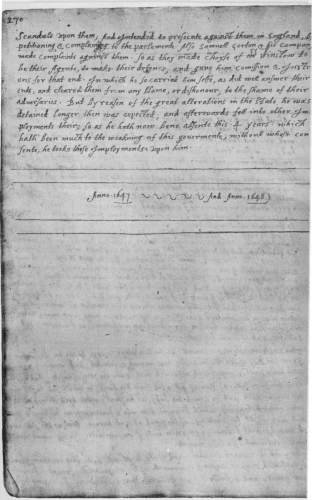 270
Scandals upon them, And intended to presente against them in England, by
petitioning & complaining to the parlemente. Also Samuell Gorton & his company
made complaints against them. So as they made choyse of Mr Winslow to
be their Agente, to make their defence, and gave him comission & instructi-
ons for that end. in which he so carried him selfe, as did well answer their
ends, and cleared them from any blame, or dishonour, to the shame of their
adversaries. But by reason of the great alterations in the State, he was
detained longer then was expected; and afterwards fell into other Im-
ployments their, so as he hath now bene absente this 4 years. which
hath been much to the weakning of this govermente, without whose con-
sente, he tooke these imployments upon him.
Anno. 1647 And Anno. 1648